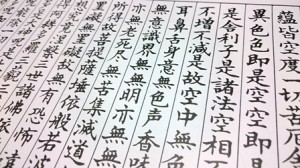 蘊皆空度一切苦厄
異色色即是空空即
是舍利子是諸法空相
不增不減是故空中無
耳鼻舌身意無色声香味
無意識界無無明亦無
亦無老死盡無苦集滅道
所得故菩提薩埵依般若波
罣礙無罣礙故無有恐怖
三世諸佛